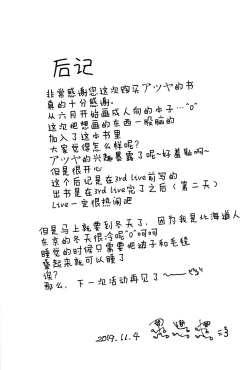 后记
非常感谢您这次购买アツヤ的书
真的十分感谢。
从六月开始画成人向的本子…^o^
这次把想画的东西一股脑的
加入了这本书里
大家觉得怎么样呢?
アツヤ的兴趣暴露了呢~好羞耻啊~
但是很开心
这个后记是在3rd live前写的
出书是在3rd live完了之后(第二天)
Live一定很热闹吧
但是马上就要到冬天了，因为我是北海道人
东京的冬天很冷呢^o^呵呵
睡觉的时候只需要把被子和毛毯
叠起来就可以睡了
诶?
那么，下一次活动再见了~
2019.11.4